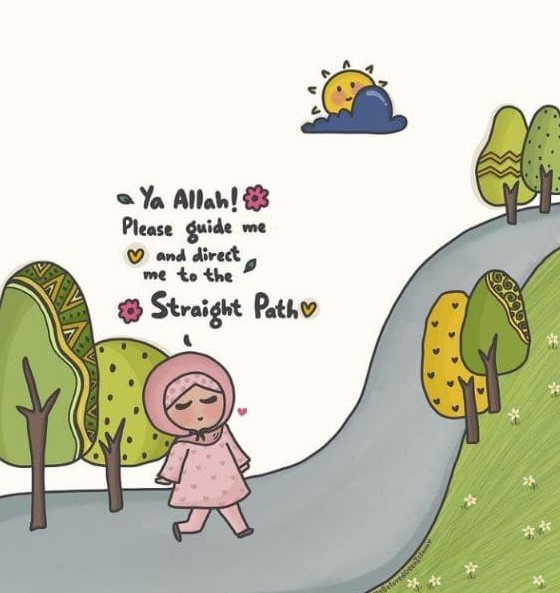 Ya Allah!
Please guide me
and direct
me to the
Straight Path